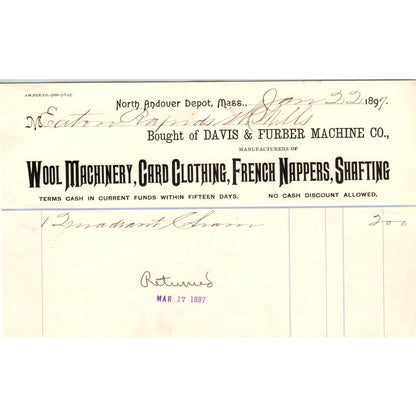 North Andover Depot, Mass., Jan 22 1897.
M Eaton Rapids W Mills
Bought of DAVIS & FURBER MACHINE CO.,
MANUFACTURERS OF
WOOL MACHINERY, CARD CLOTHING, FRENCH NAPPERS, SHAFTING
TERMS CASH IN CURRENT FUNDS WITHIN FIFTEEN DAYS. NO CASH DISCOUNT ALLOWED.
1 Quadrant Chain 200
Returned
MAR 17 1897